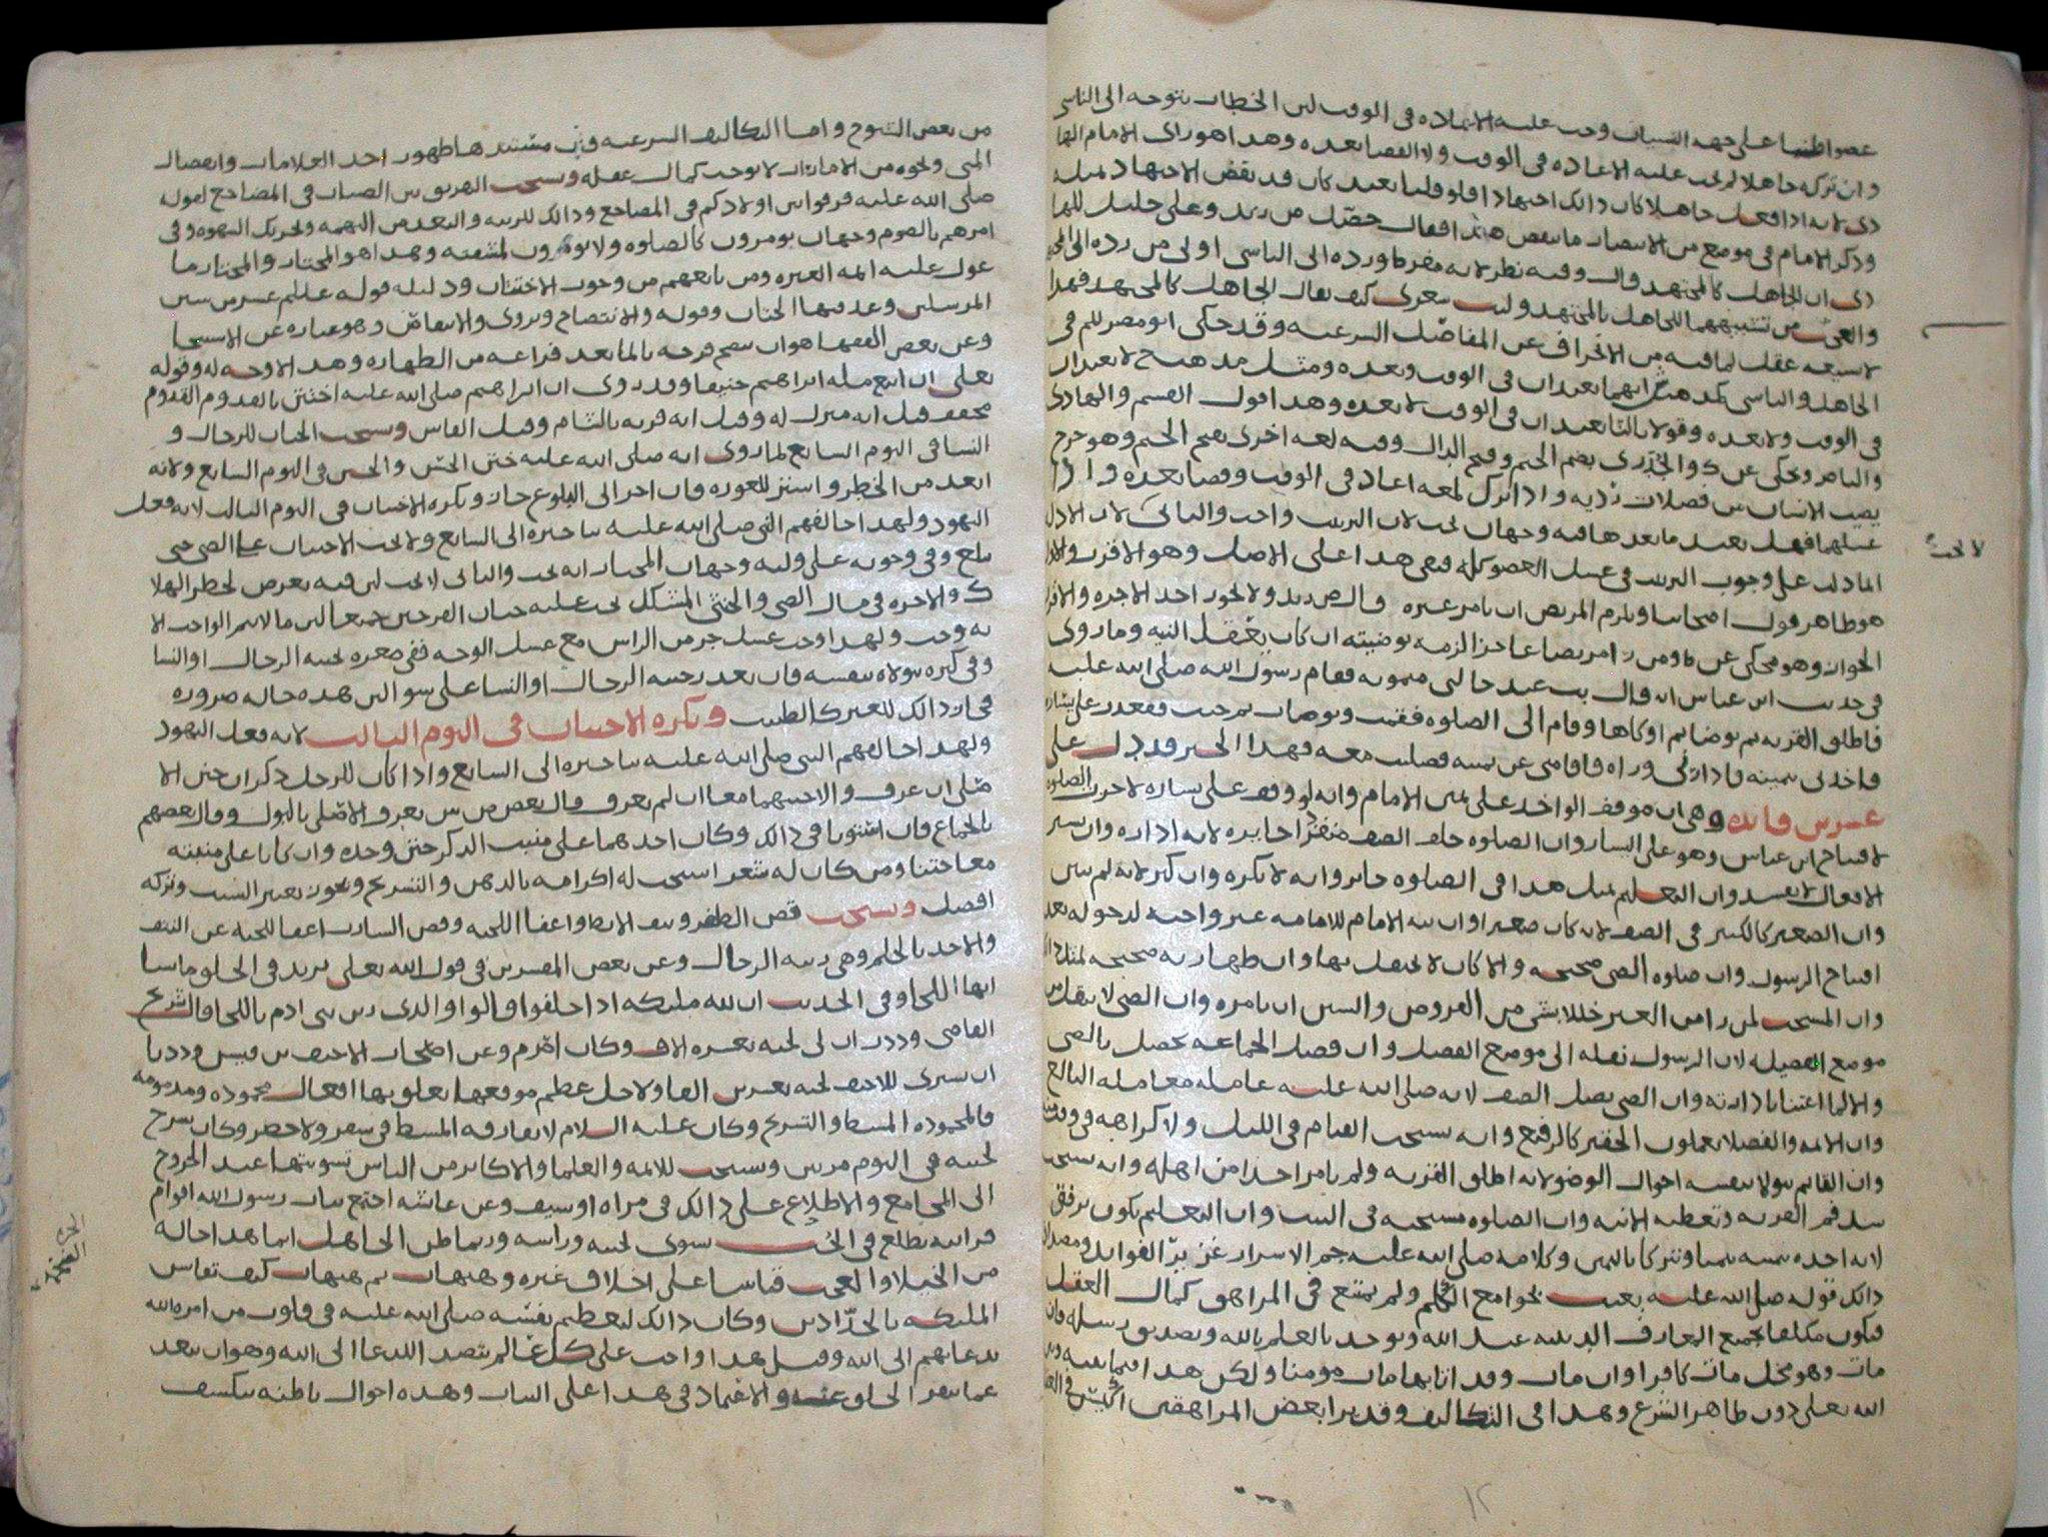 عضوا ظنيا على جهه النسيان وجب عليه الاعاده فى الوقت لان الخطاب يتوجه الى الناسى
وان تركه جاهلا لم يجب عليه الاعاده فى الوقت ولا القضا بعده وهدا هو راى الامام
دى لانه ادا فعل جاهلا كان دالك اجتهادا فلو قلنا يعيد كان قد نقض الاجتهاد بمثله
ودكر الامام فى موضع من الانتصار ما ينقض هدا فقال
دى ان الجاهل كالمجتهد قال وفيه نظر لانه مفرط ورده الى الناسى اولى من رده الى
والعجب من تشبيههما للجاهل بالمجتهد وليت شعرى كيف يقال الجاهل كالمجتهد فهدا
لا سيغه عقل لما فيه من الانحراف عن المفاضل الشرعيه وقد حكى ابو مضر للم فى
الجاهل والناسى انهما يعيدان فى الوقت وبعده ومثل مدهب لا يعيدان
فى الوقت ولا بعده وقولا بالثا يعيدان فى الوقت لا بعده وهدا قول القسم والهادى
والناصر وحكى عن ك والخُدرى بضم الجيم وفتح الدال وفيه لغه اخرى بفتح الجيم وهو خرج
يصيب الانسان من فضلات ردية وادا ترك لمعه اعاد فى الوقت وقضا بعده وادا
غسلهما فهل يعيد ما بعدها فيه وجهان يجب لان الترتيب واجب والثانى لا لان الادله
انما دلت على وجوب الترتيب فى غسل العضو كله فبقى هدا على الاصل وهو الاقرب
هو ظاهر قول اصحابنا ويلزم المريض ان يامر غيره قال ص زيد ولا يجوز اخد الاجره
الجواز وهو محكى عن ط ومن امر بضا عاجزا لزمه توضيته ان كان يعقل النيه وما روى
فى حديث ابن عباس انه قال بت عند خالتى ميمونه فقام رسول الله صلى الله عليه
فاطلق القربه ثم توضا ثم اوكاها وقام الى الصلوه فقمت وتوضات ثم جيت فقعدت على يساره
فاخدنى بيمينه فادارنى وراه فاقامنى عن يمينه فصليت معه فهدا الخبر قد دل على
عشرين فايده وهى ان موقف الواحد على يمين الامام وانه لو وقف على يساره لا حرت الصلوه
لافتتاح ابن عباس وهو على اليسار وان الصلوه خلف الصف منفردا جايزه لانه اداره وان يسير
الافعال لا يفسد وان التعليم بمثل هدا فى الصلوه جايز وانه لا يكره وان كبر لانه لم يبين
وان الصغير كالكبير فى الصف لانه كان صغيرا وان نيه الامام للامامه غير واجبه لدخوله بعد
افتتاح الرسول وان صلاوه الصبى صحيحه والا كان لا يحفل بها وان طهارته صحيحه
وان المستحب لمن راى من الغير خللا بشى من الفروض والسنن ان يامره وان الصبى لا ينقل من
موضع الفضيله لان الرسول نقله الى موضع الفضل وان فضل الجماعه يحصل بالصبى
والا لما اعتنا بادارته وان الصبى يصل الصف لانه صلى الله عليه عامله معاملة البالغ
وان الايمه والفضلا يعملون الحقير كالرفيع وانه يستحب القيام فى الليل ولا كراهه فى
وان القايم يتولا بنفسه احوال الوضو لانه اطلق القربه ولم يامر احدا من اهله وانه يستحب
سد فم القربه وتغطيه الانيه وان الصلاوه مستحبه فى البيت وان التعليم يكون برفق
لانه اخده بيمينه تيمنا وتبركا باليمين وكلامه صلى الله عليه جم الاسرار غزير الفوايد
دالك قوله صلى الله عليه بعثت بجوامع الكلم ولم يمتنع فى المراهق كمال العقل
فيكون مكلفا بجميع المعارف الدينيه عند الله وتوحد بالعلم بالله وتصديق رسله فان
مات وهو مخل مات كافرا وان مات وقد اتا بها مات مومنا ولكن هدا فيما بينه وبين
الله تعلى دون ظاهر الشرع وهدا فى التكاليف وقد يرا بعض المراهقين
لا يجب
من بعض الشيوخ واما التكاليف الشرعيه مستندها ظهور احد العلامات وانفصال
المنى ونحوه من الامارات لا يوجب كمال عقله ويستحب التفريق بين الصبيان فى المضاجع لقوله
صلى الله عليه فرقوا بين اولادكم فى المضاجع ودالك للريبه والبعد من التهمه وتحريك الشهوه وفى
امرهم بالصوم وجهان يومرون كالصلاوه ولا يومرون لمشقته وهدا هو المختار والمختار ما
عول عليه ايمه العتره ومن تابعهم من وجوب الاختتان ودليله قوله عللم عشر من سنن
المرسلين وعد فيها الختان وقوله والانتضاح ويروى والانتفاض وهو عباره عن الاستنجا
وعن بعض الفقها هو ان ينضح فرجه بالما بعد فراغه من الطهاره وهدا لا وجه له وقوله
تعلى ان اتبع مله ابراهيم حنيفا وقد روى ان ابراهيم صلى الله عليه اختتن بالقدوم القدوم
مخفف قيل انه منزل له وقيل انه قريه بالشام وقيل الفاس ويستحب الختان للرجال و
النسا فى اليوم السابع لما روى انه صلى الله عليه ختن الحسن والحسين فى اليوم السابع ولانه
ابعد من الخطر واستر للعوره فان اخر الى البلوغ جاز ويكره الاختتان فى اليوم الثالث لانه فعل
اليهود ولهدا خالفهم النبى صلى الله عليه بتاخيره الى السابع ولا يجب الاختتان على الصبى حتى
يبلغ وفى وجوبه على وليه وجهان المختار انه يجب والثانى لا يجب لان فيه تعرض لخطر الهلاك
ك والاجره فى مال الصبى والخنثى المشكل يجب عليه ختان الفرجين جميعا لان ما لا يتم الواجب الا
به وجب ولهدا وجب غسل جزء من الراس مع غسل الوجه ففى صغره يختنه الرجال او النسا
وفى كبره يتولاه بنفسه فان تعدر ختنه الرجال او النسا على سوا لان هده حاله ضروره
فجاز دالك للغير كالطبيب ويكره الاختتان فى اليوم الثالث لانه فعل اليهود
ولهدا خالفهم النبى صلى الله عليه بتاخيره الى السابع وادا كان للرجل دكران ختن الا
صلى ان عرف والا ختنهما معا ان لم يعرف وقال بعض ص ش يعرف الاصلى بالبول وقال بعضهم
بالجماع فان استويا فى دالك وكان احدهما على منبت الدكر ختن وحده وان كانا على منبته
معا ختنا ومن كان له شعر استحب له اكرامه بالدهن والتسريح ويجوز تغيير الشيب وتركه
افضل ويستحب قص الظفر ونتف الابط واعفا اللحيه وقص الشارب اعفا اللحيه عن النتف
والاخد بالجلم وهى زينه الرجال وعن بعض المفسرين فى قول الله تعلى يزيد فى الخلق ما يشا
انها اللحا وفى الحديث ان لله مليكه ادا حلفوا قالوا والدى زين بنى ادم باللحا قال شريح
القاضى وددت ان لى لحيه بعشره الاف وكان اقرم وعن اصحاب الاحنف بن قيس وددنا
ان نشترى للاحنف لحيه بعشرين الفا ولاجل عظم موقعها يتعلق بها افعال محموده ومدمومه
فالمحموده المشط والتسريح وكان عليه السلام لا يفارقه المشط فى سفر ولا حضر وكان يسرح
لحيته فى اليوم مرتين ويستحب للايمه والعلما والاكابر من الناس تسويتها عند الخروج
الى المجامع والاطلاع على دالك فى مراه او سيف وعن عايشه اجتمع بباب رسول الله اقوام
فرايته يطلع فى الحُب يسوى لحيته وراسه وربما ظن الجاهل انما هدا حاله
من الخيلا والعجب قياسا على اخلاق غيره وهيهات ثم هيهات كيف تقاس
المليكه بالحدّادين وكان دالك لتعظيم نفسه صلى الله عليه فى قلوب من امره الله
بدعايهم الى الله وقيل هدا واجب على كل عالم يتصد للدعا الى الله وهو ان يبعد
عما ينفر الخلق عنه والاعتماد فى هدا على النيات وهده احوال باطنه ينكشف
١٢